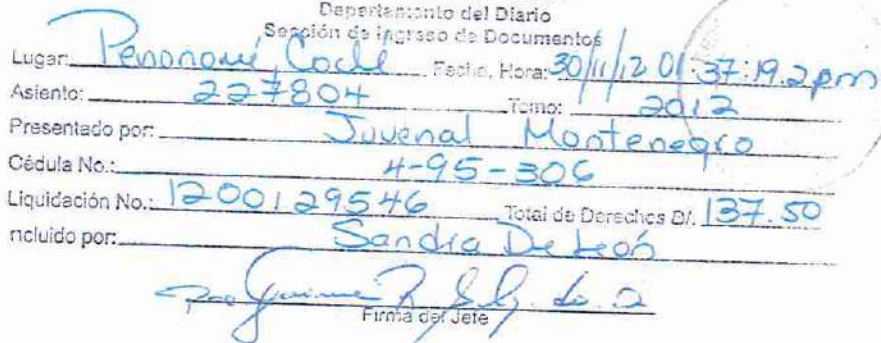 Departamento del Diario
Sección de Ingreso de Documentos
Lugar: Penonomé, Coclé Fecha, Hora: 30/11/12 01:37:19.2pm
Asiento: 227804 Tomo: 2012
Presentado por: Juvenal Montenegro
Cédula No.: 4-95-306
Liquidación No.: 1200129546 Total de Derechos B/. 137.50
ncluido por: Sandra De León
Firma del Jefe